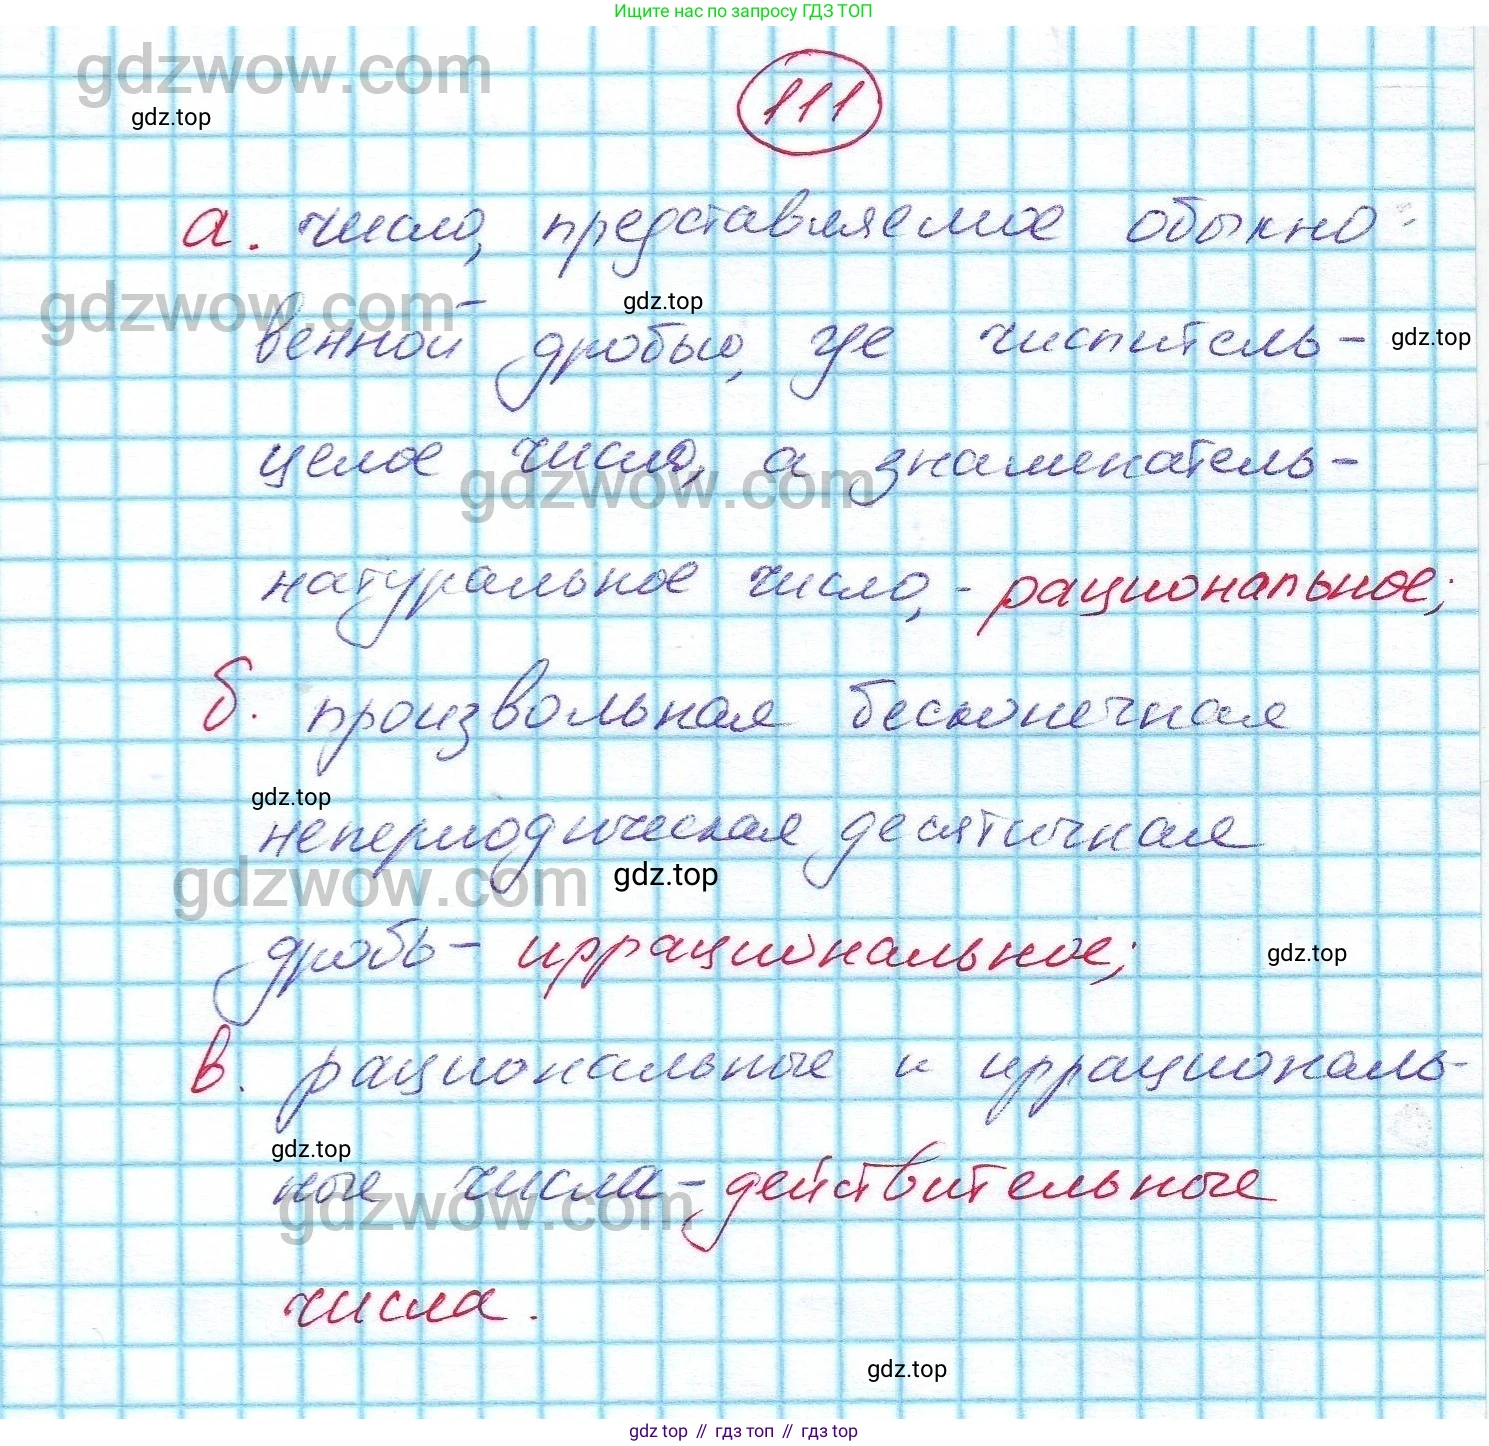 Ищите нас по запросу ГДЗ ТОП
gdzwow.com
gdz.top
111
а. число, представляемое обыкно-
gdzwow.com
gdz.top
венной дробью, где числитель -
gdz.top
целое число, а знаменатель -
gdzwow.com
натуральное число, - рациональное;
б. произвольная бесконечная
gdz.top
непериодическая десятичная
gdzwow.com
gdz.top
дробь - иррациональное;
gdz.top
в. рациональные и иррациональ-
gdz.top
ные числа - действительные
gdzwow.com
числа.
gdz.top
gdz top // гдз топ // гдз top